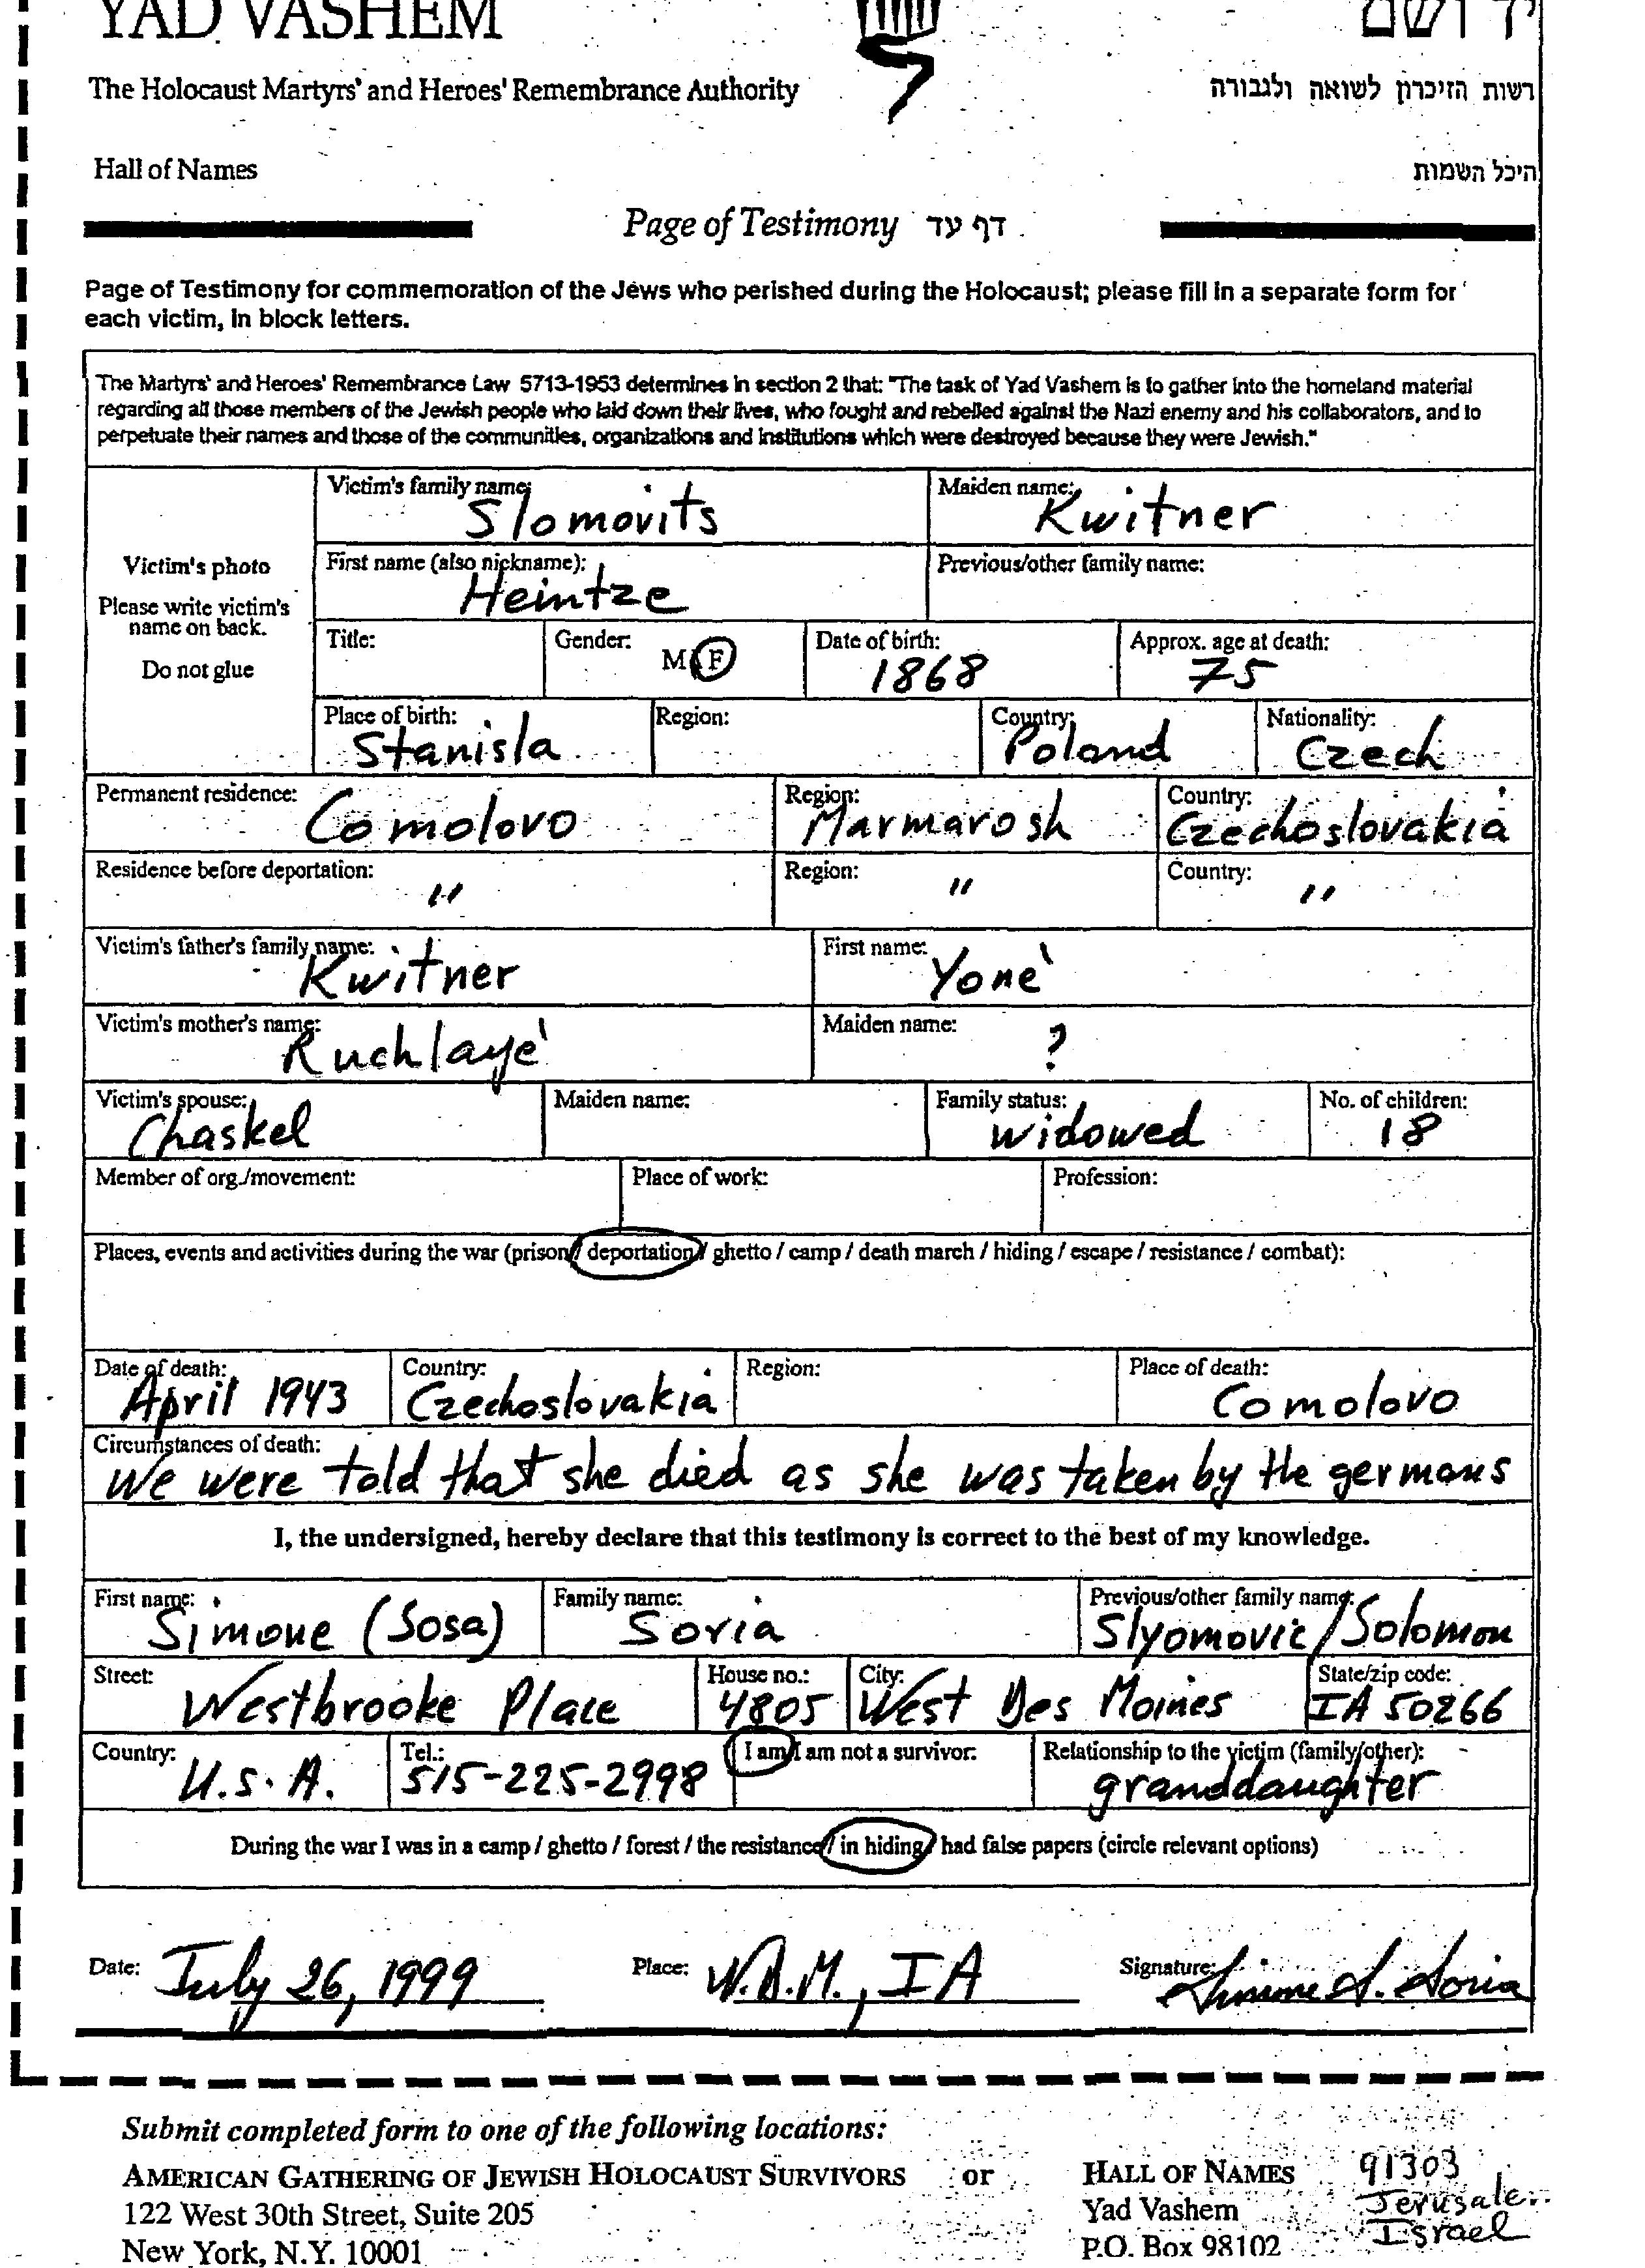 YAD VASHEM יד ושם
The Holocaust Martyrs' and Heroes' Remembrance Authority רשות הזיכרון לשואה ולגבורה
Hall of Names היכל השמות
Page of Testimony דף עד
Page of Testimony for commemoration of the Jews who perished during the Holocaust; please fill in a separate form for
each victim, in block letters.
The Martyrs' and Heroes' Remembrance Law 5713-1953 determines in section 2 that: "The task of Yad Vashem is to gather into the homeland material
regarding all those members of the Jewish people who laid down their lives, who fought and rebelled against the Nazi enemy and his collaborators, and to
perpetuate their names and those of the communities, organizations and institutions which were destroyed because they were Jewish."
Victim's photo
Please write victim's
name on back.
Do not glue
Victim's family name: Slomovits Maiden name: Kwitner
First name (also nickname): Heintze Previous/other family name:
Title: Gender: M / F Date of birth: 1868 Approx. age at death: 75
Place of birth: Stanisla Region: Country: Poland Nationality: Czech
Permanent residence: Comolovo Region: Marmarosh Country: Czechoslovakia
Residence before deportation: " Region: " Country: "
Victim's father's family name: Kwitner First name: Yonè
Victim's mother's name: Ruchlayè Maiden name: ?
Victim's spouse: Chaskel Maiden name: Family status: widowed No. of children: 18
Member of org./movement: Place of work: Profession:
Places, events and activities during the war (prison / deportation / ghetto / camp / death march / hiding / escape / resistance / combat):
Date of death: April 1943 Country: Czechoslovakia Region: Place of death: Comolovo
Circumstances of death:
We were told that she died as she was taken by the germans
I, the undersigned, hereby declare that this testimony is correct to the best of my knowledge.
First name: Simone (Sosa) Family name: Soria Previous/other family name: Slyomovic/Solomon
Street: Westbrooke Place House no.: 4805 City: West Des Moines State/zip code: IA 50266
Country: U.S.A. Tel.: 515-225-2998 I am/I am not a survivor. Relationship to the victim (family/other): granddaughter
During the war I was in a camp / ghetto / forest / the resistance / in hiding / had false papers (circle relevant options)
Date: July 26, 1999 Place: W.D.M., IA Signature: Simone S. Soria
Submit completed form to one of the following locations:
AMERICAN GATHERING OF JEWISH HOLOCAUST SURVIVORS or HALL OF NAMES 91303
122 West 30th Street, Suite 205 Yad Vashem
New York, N.Y. 10001 P.O. Box 98102 Israel